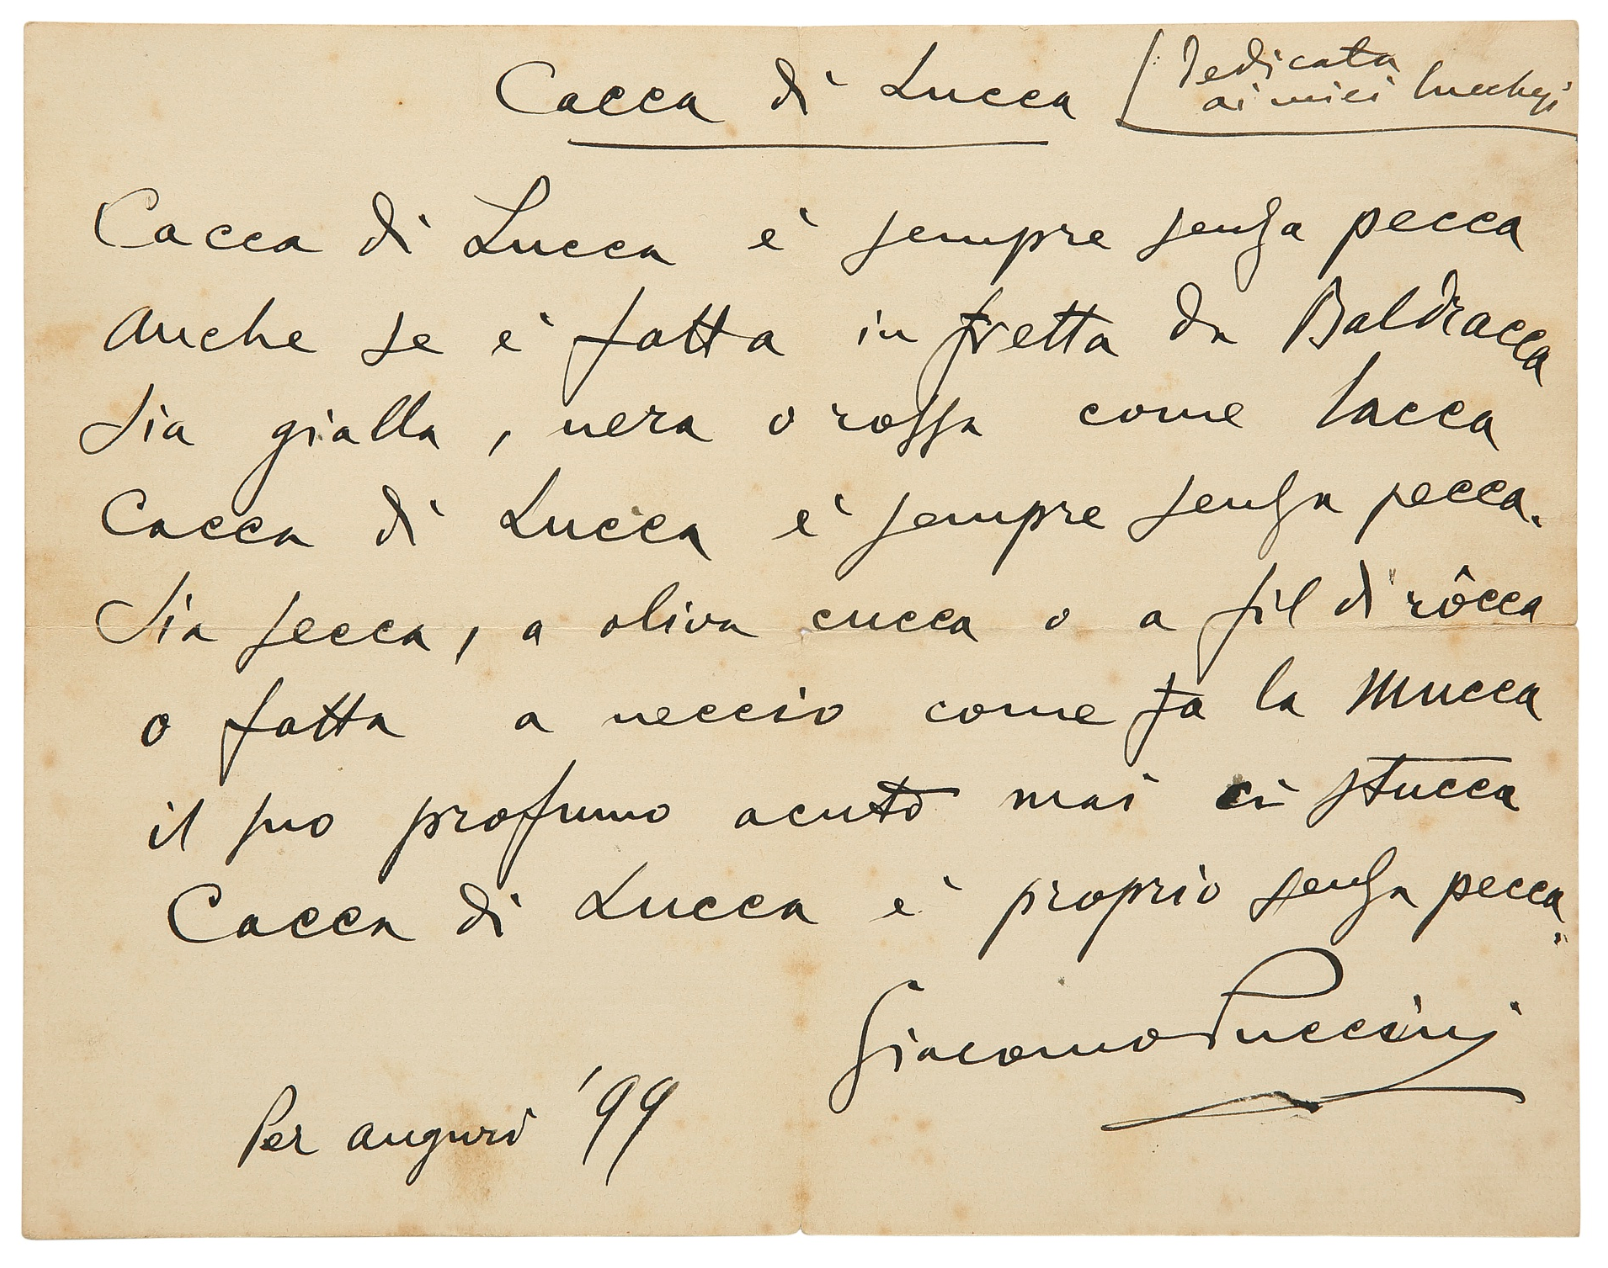 Cacca di Lucca
Dedicata
ai miei lucchesi
Cacca di Lucca è sempre senza pecca
Anche se è fatta in fretta da Baldracca
Sia gialla, nera o rossa come lacca
Cacca di Lucca è sempre senza pecca.
Sia secca, a oliva cucca o a fil di rôcca
o fatta a neccio come fa la Mucca
il suo profumo acuto mai ci stucca
Cacca di Lucca è proprio senza pecca.
Giacomo Puccini
Per augurio '99